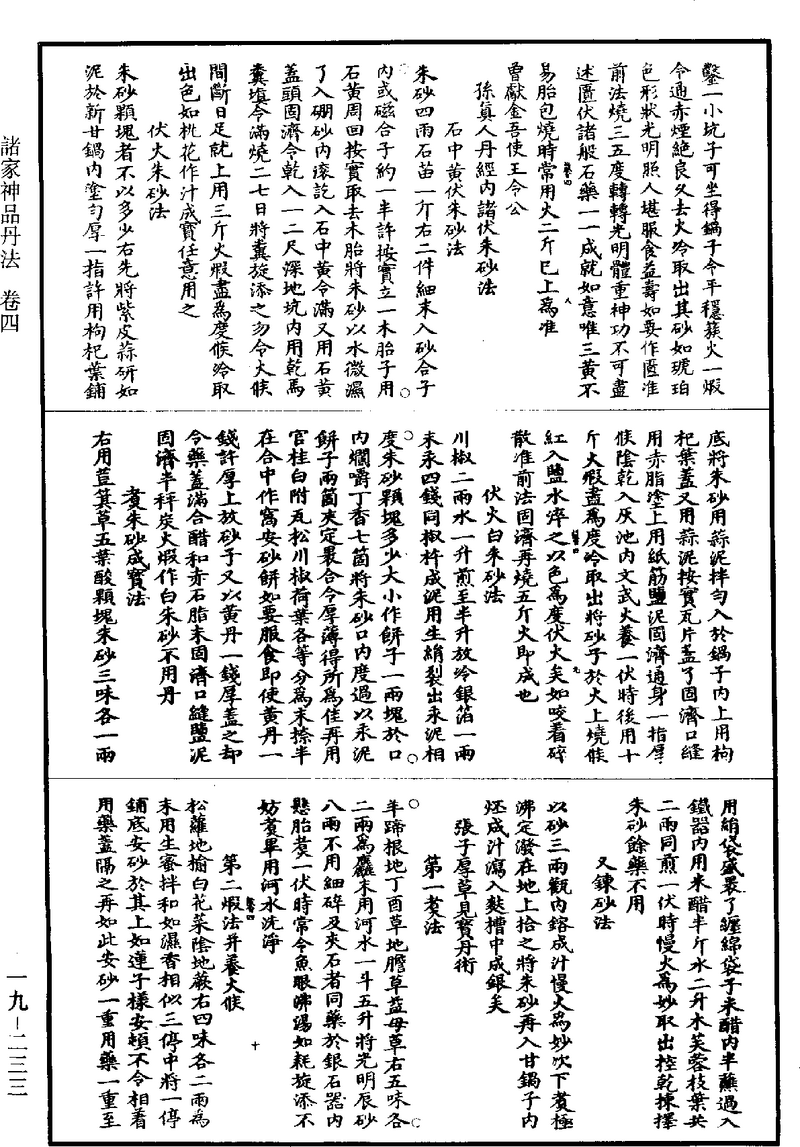 鑿一小坑子可坐得鍋子令平穩簇火一煅
令通赤煙絕良久去火冷取出其砂如琥珀
色形狀光明照人堪服食益壽如要作匱准
前法燒三五度轉轉光明體重神功不可盡
述匱伏諸般石藥一一成就如意唯三黃不
易胎包燒時常用火二斤已上為准
曾獻金吾使王令公
孫真人丹經內諸伏朱砂法
石中黃伏朱砂法
朱砂四兩石苗一斤右二件細末入砂合子
內或磁合子約一半許按實立一木胎子用
石黃周回按實取去木胎將朱砂以水微濕
了入硼砂內滾訖入石中黃令滿又用石黃
蓋頭固濟令乾入一二尺深地坑內用乾馬
糞塡令滿燒二七日將糞旋添之勿令火候
間斷日足就上用三斤火煅盡為度候冷取
出色如桃花作汁成寶任意用之
伏火朱砂法
朱砂顆塊者不以多少右先將紫皮蒜研如
泥於新甘鍋內塗勻厚一指許用枸杞葉鋪
底將朱砂用蒜泥拌勻入於鍋子內上用枸
杞葉蓋又用蒜泥按實瓦片蓋了固濟口縫
用赤脂塗上用紙筋鹽泥固濟通身一指厚
候陰乾入灰池內文武火養一伏時後用十
斤火煅盡為度冷取出將砂子於火上燒候
紅入鹽水淬之以色為度伏火矣如咬着碎
散准前法固濟再燒五斤火即成也
伏火白朱砂法
川椒二兩水一升煎至半升放冷銀箔一兩
末汞四錢同椒杵成泥用生絹裂出汞泥相
度朱砂顆塊多少大小作餅子一兩塊於口
內爛嚼丁香七箇將朱砂口內度過以汞泥
餅子兩箇夾定裹合令厚薄得所為佳再用
官桂白附瓦松川椒荷葉各等分為末捺半
在合中作窩安砂餅如要服食即使黃丹一
錢許厚上放砂子又以黃丹一錢厚蓋之却
令藥蓋滿合醋和赤石脂末固濟口縫鹽泥
固濟半秤炭火煅作白朱砂不用丹
煑朱砂成寶法
右用荳箕草五葉酸顆塊朱砂三味各一兩
用絹袋盛裹了纏綿袋子米醋內半蘸過入
鐵器內用米醋半斤水二升木芙蓉枝葉共
二兩同煎一伏時慢火為妙取出控乾揀擇
朱砂餘藥不用
又鍊砂法
以砂三兩觀內鎔成汁慢火為妙次下煑極
沸定潑在地上拾之將朱砂再入甘鍋子內
烴成汁瀉入麩槽中成銀矣
張子厚草見寶丹術
第一煑法
羊蹄根地丁酉草地膽草益母草右五味各
二兩為麤末用河水一斗五升將光明辰砂
八兩不用細碎及夾石者同藥於銀石器內
懸胎煑一伏時常令魚眼沸湯如耗旋添不
妨煑畢用河水洗淨
第二煆法并養火候
松蘿地榆白花菜陰地蕨右四味各二兩為
末用生蜜拌和如濕香相似三停中將一停
鋪底安砂於其上如蓮子樣安頓不令相着
用藥蓋隔之再如此安砂一重用藥一重至
諸家神品丹法　卷四
一九-二三三